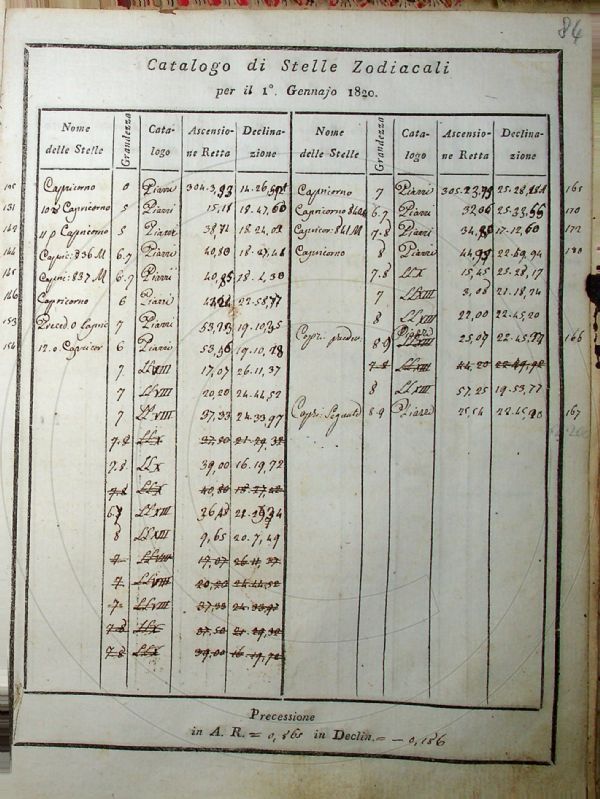 84
Catalogo di Stelle Zodiacali
per il 1°. Gennajo 1820.
Nome delle Stelle Grandezza Cata-logo Ascensio-ne Retta Declina-zione Nome delle Stelle Grandezza Cata-logo Ascensio-ne Retta Declina-zione
Capricorno Piazzi Capricorno 7 Piazzi 165
131 Capricorno 5 Piazzi 15,11 18.47,60 Capricorno 6.7 Piazzi 32,06 25.33,56 170
Capricorno 5 Piazzi 18.24,02 7.8 Piazzi 34,80 17.12,60 172
Capric: 836 M 6.7 Piazzi 40,80 Capricorno 8 Piazzi 44,99 22.49,94
Capric: 837 M 6.7 Piazzi 40,85 18.1,30 7.8 LLX 15,45 25.28,17
146 Capricorno 6 Piazzi 22.58,77 7 LLXIII 3,08 21.18,24
153 Preced. o Capric 7 Piazzi 53,23 19.10,35 8 LLXIII 22,00 22.45,20
154 12. o Capricor 6 Piazzi 53,56 19.10,18 Capri: preced 8.9 Piazzi 25,07 22.45,37 166
7 LLXIII 17,07 26.11,37 7.8 LLXIII 44,20 22.49,92
7 LLVIII 20,20 24.44,52 8 LLXIII 57,25 19.53,77
7 LLVIII 37,33 24.33,97 Capri: Seguente 8.9 Piazzi 25,54 22.45,90 167
7.8 LLX 37,50 21.29,32
7.8 LLX 39,00 16.19,72
7.8 LLX 40,80 18.27,42
LLXIII 36,48
8 LLXIII 9,65 20.7,49
7 LLVIII 17,07 26.11,37
7 LLVIII 20,20 24.44,52
7 LLVIII 37,33 24.33,97
7.8 LLX 37,50 21.29,32
7.8 LLX 39,00 16.19,72
Precessione
in A. R. = 0,865 in Declin. = - 0,186